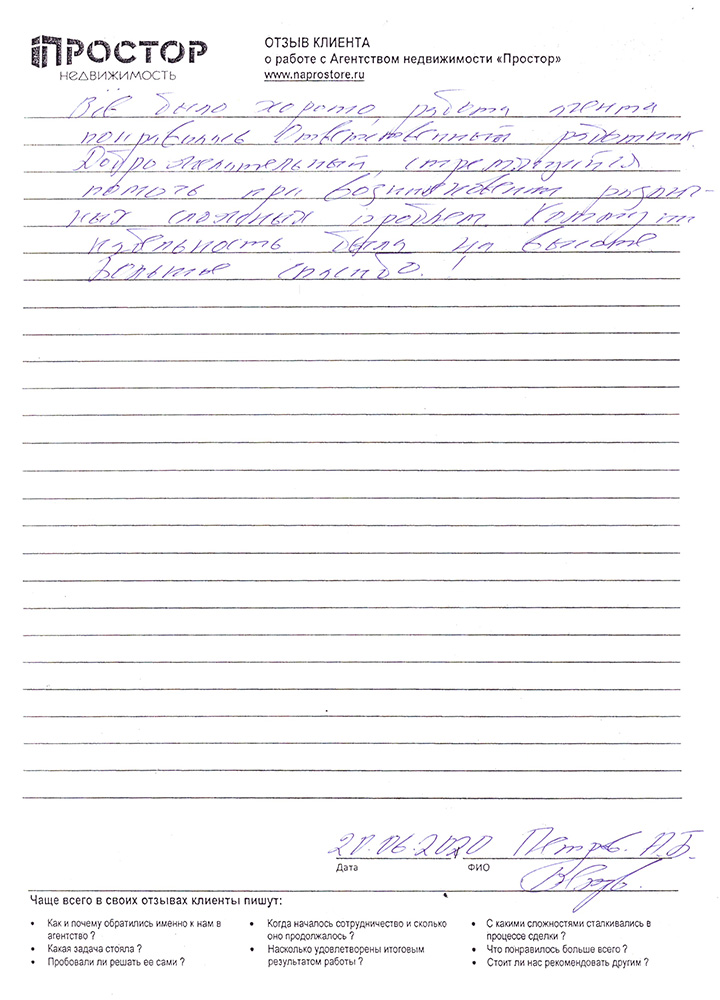 ПРОСТОР
НЕДВИЖИМОСТЬ
ОТЗЫВ КЛИЕНТА
о работе с Агентством недвижимости «Простор»
www.naprostore.ru
Всё было хорошо, работа агента
понравилась Ответственный работник.
Доброжелательный, стремящийся
помочь при возникновении различ-
ных сложных проблем. Коммуни
кабельность была на высоте
Большое спасибо!
20.06.2020 Петров. А.Б.
Дата ФИО
Чаще всего в своих отзывах клиенты пишут:
• Как и почему обратились именно к нам в
агентство ?
• Какая задача стояла ?
• Пробовали ли решать ее сами ?
• Когда началось сотрудничество и сколько
оно продолжалось ?
• Насколько удовлетворены итоговым
результатом работы ?
• С какими сложностями сталкивались в
процессе сделки ?
• Что понравилось больше всего ?
• Стоит ли нас рекомендовать другим ?